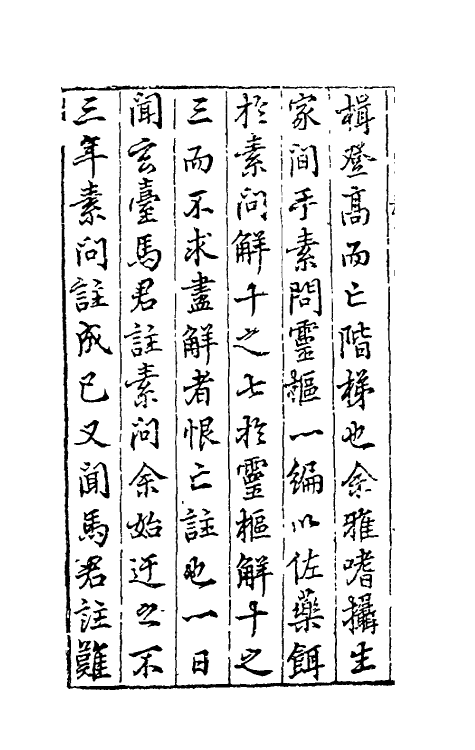 楫登高而亡階梯也余雅嗜攝生
家間手素問靈樞一編以佐藥餌
於素問解十之七於靈樞解十之
三而不求盡解者恨亡註也一日
聞玄臺馬君註素問余始迂之不
三年素問註成已又聞馬君註難